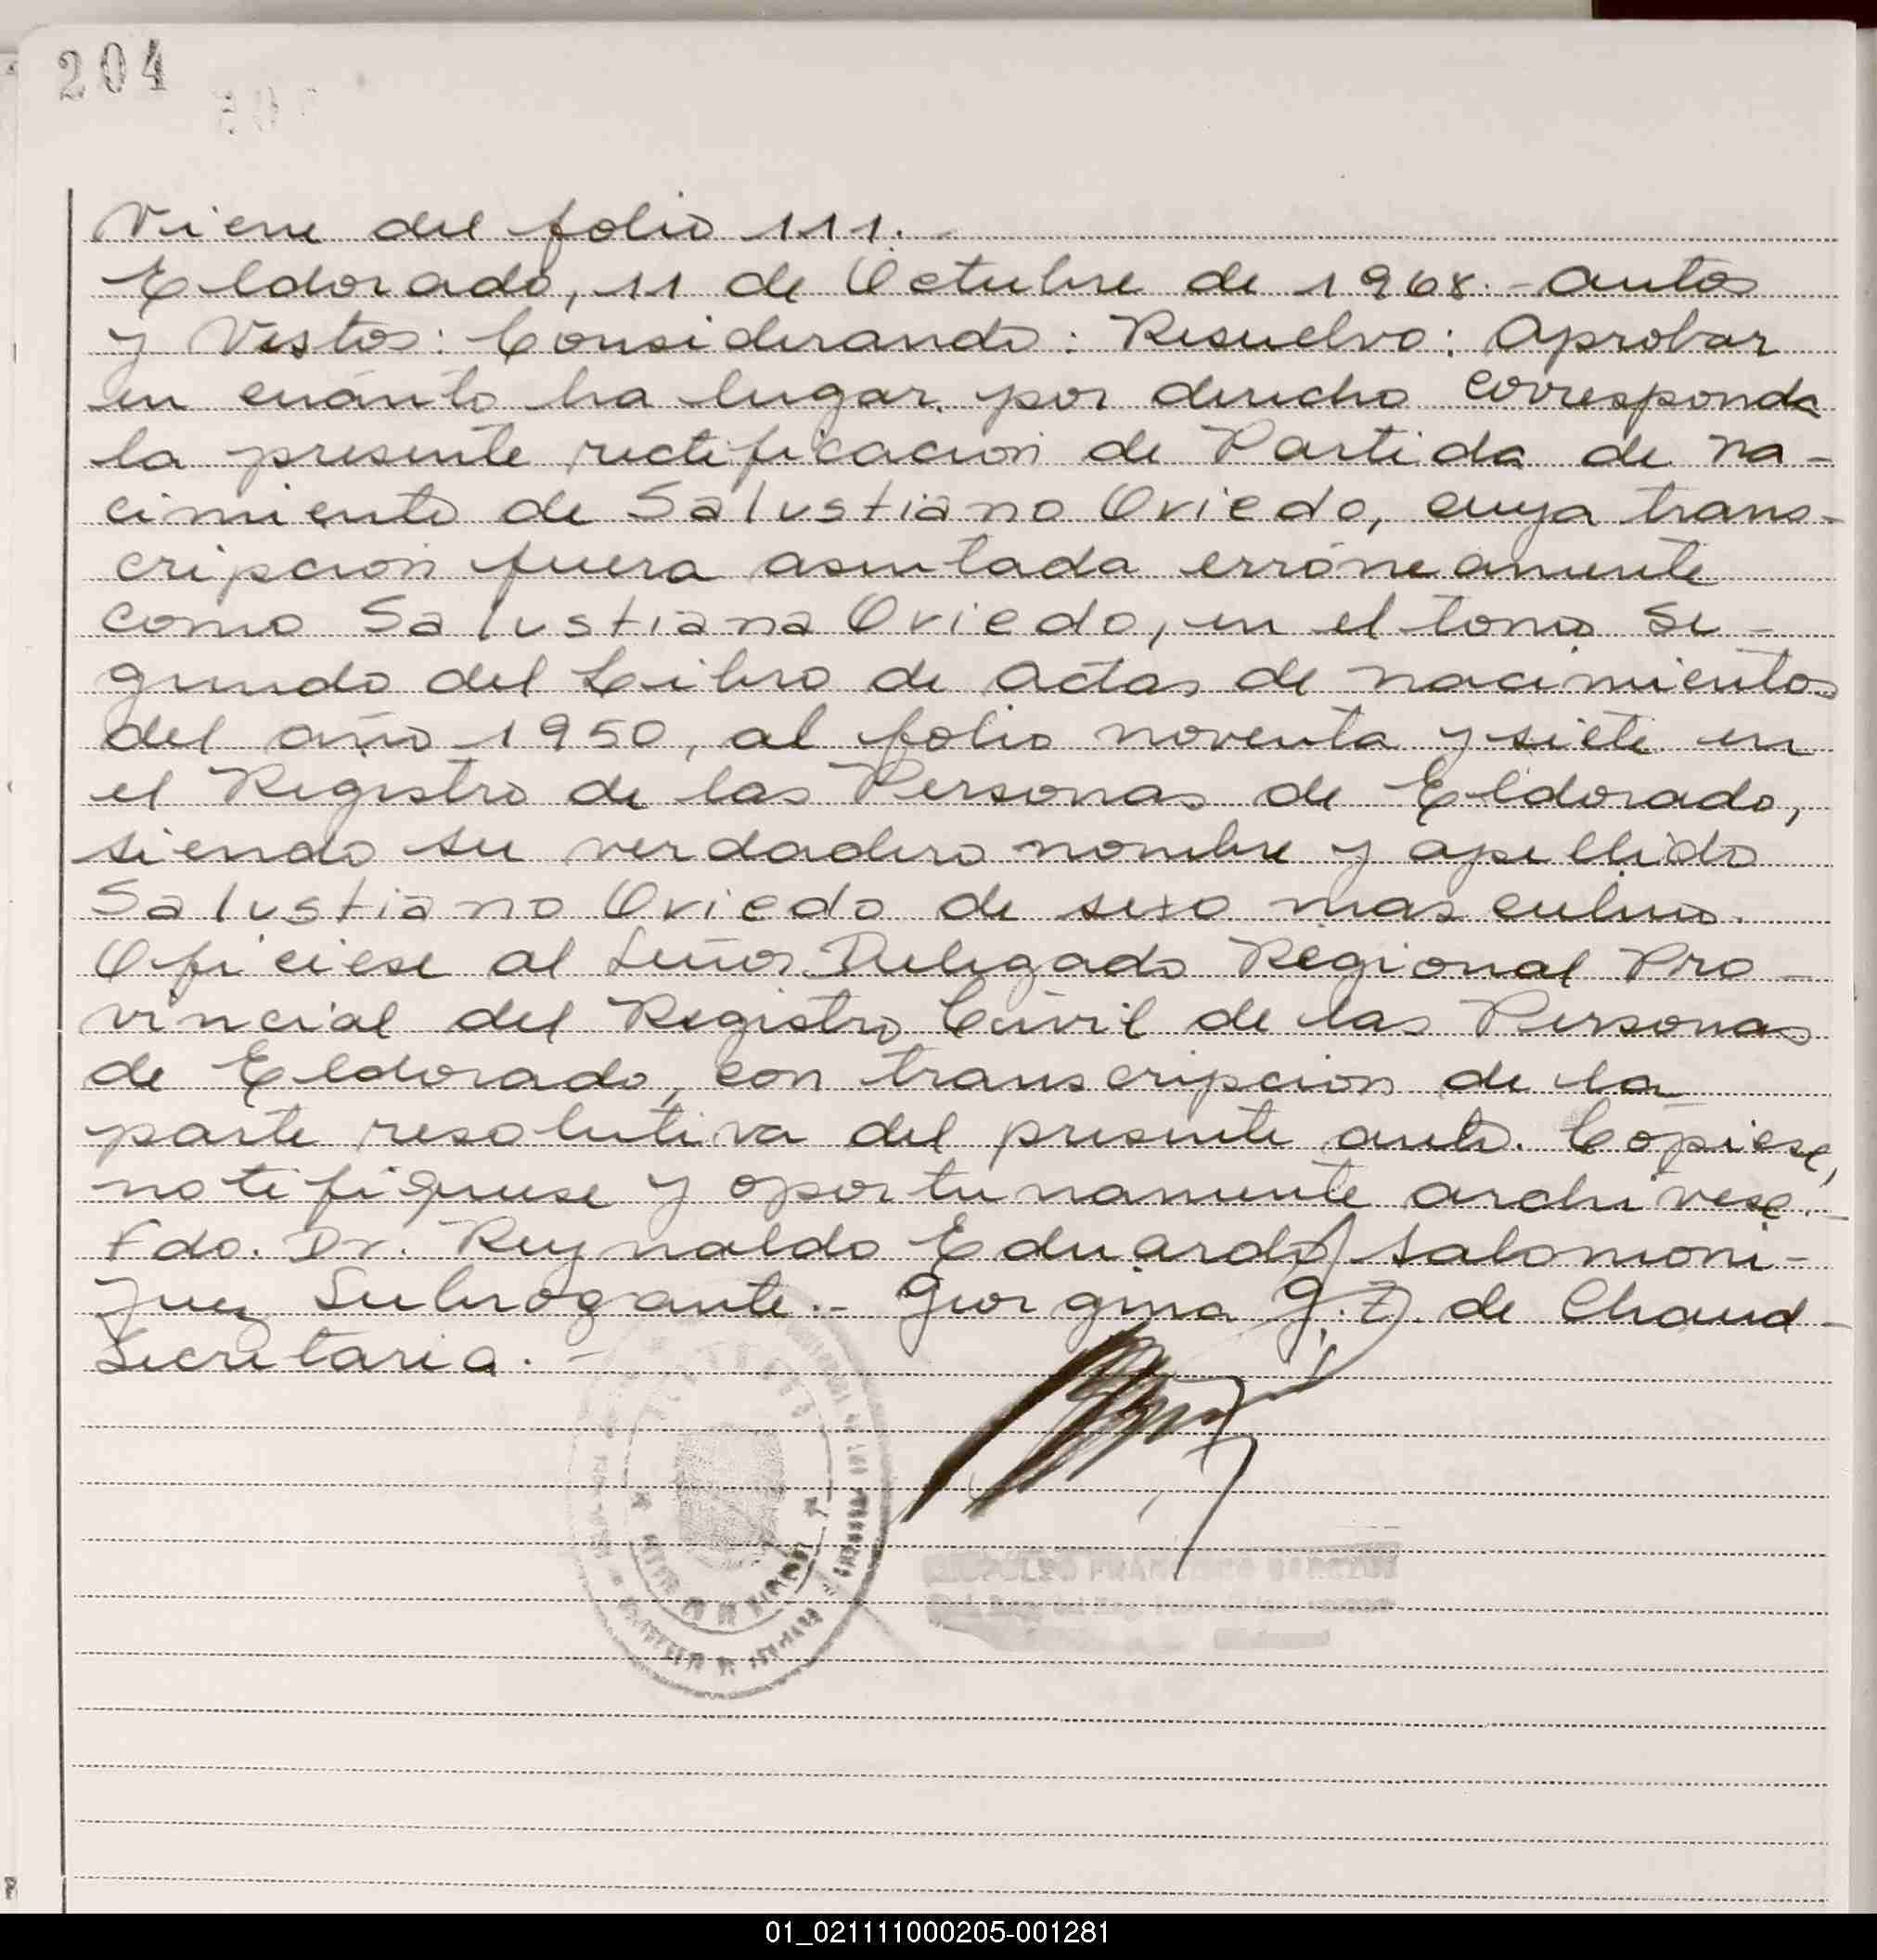 204
Viene del folio 111.
Eldorado, 11 de Octubre de 1968.- Autos
y Vistos: Considerando: Resuelvo: Aprobar
en cuánto ha lugar por derecho corresponda
la presente rectificación de Partida de na-
cimiento de Salustiano Oviedo, cuya trans-
cripción fuera asentada erróneamente
como Salustiana Oviedo, en el tomo Se-
gundo del Libro de Actas de nacimientos
del año 1950, al folio noventa y siete en
el Registro de las Personas de Eldorado,
siendo su verdadero nombre y apellido
Salustiano Oviedo de sexo masculino.
Ofíciese al Señor Delegado Regional Pro-
vincial del Registro Civil de las Personas
de Eldorado, con transcripción de la
parte resolutiva del presente auto. Cópiese,
notifíquese y oportunamente archívese.-
Fdo. Dr. Reynaldo Eduardo Salomoni-
Juez Subrogante.- Georgina G. Z. de Chaud-
Secretaria.-
FRANCISCO
01_021111000205-001281